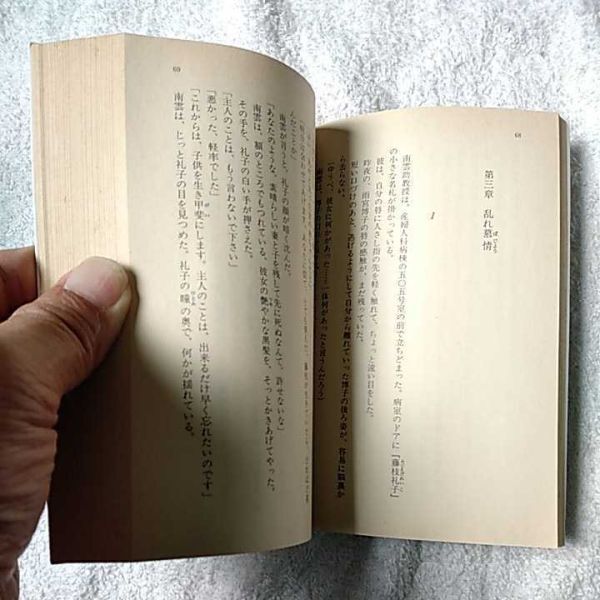 68
第三章 乱れ慕情
ぼじょう
1
南雲助教授は、産婦人科病棟の五〇五号室の前で立ちどまった。病室のドアに『藤枝礼子』
の小さな名札が掛かっている。
彼は、自分の唇に人さし指の先を軽く触れて、ちょっと遠い目をした。
昨夜の、雨宮博子の唇の感触が、まだ残っていた。
短い口づけのあと、逃げるようにして自分から離れていった博子の後ろ姿が、容易に脳裏か
ら去らない。
(ゆうべ、彼女に何かがあった……一体何があったと言うんだろう)
69
んだことを
南雲が言うと、礼子の顔が暗く沈んだ。
「あなたのような、素晴らしい妻と子を残して先に死ぬなんて、許せないな」
南雲は、額のところでもつれている、彼女の艶やかな黒髪を、そっとかきあげてやった。
その手を、礼子の白い手が押さえた。
「主人のことは、もう言わないで下さい」
「悪かった、軽率でした」
「これからは、子供を生き甲斐にします。主人のことは、出来るだけ早く忘れたいのです」
南雲は、じっと礼子の目を見つめた。礼子の瞳の奥で、何かが揺れている。